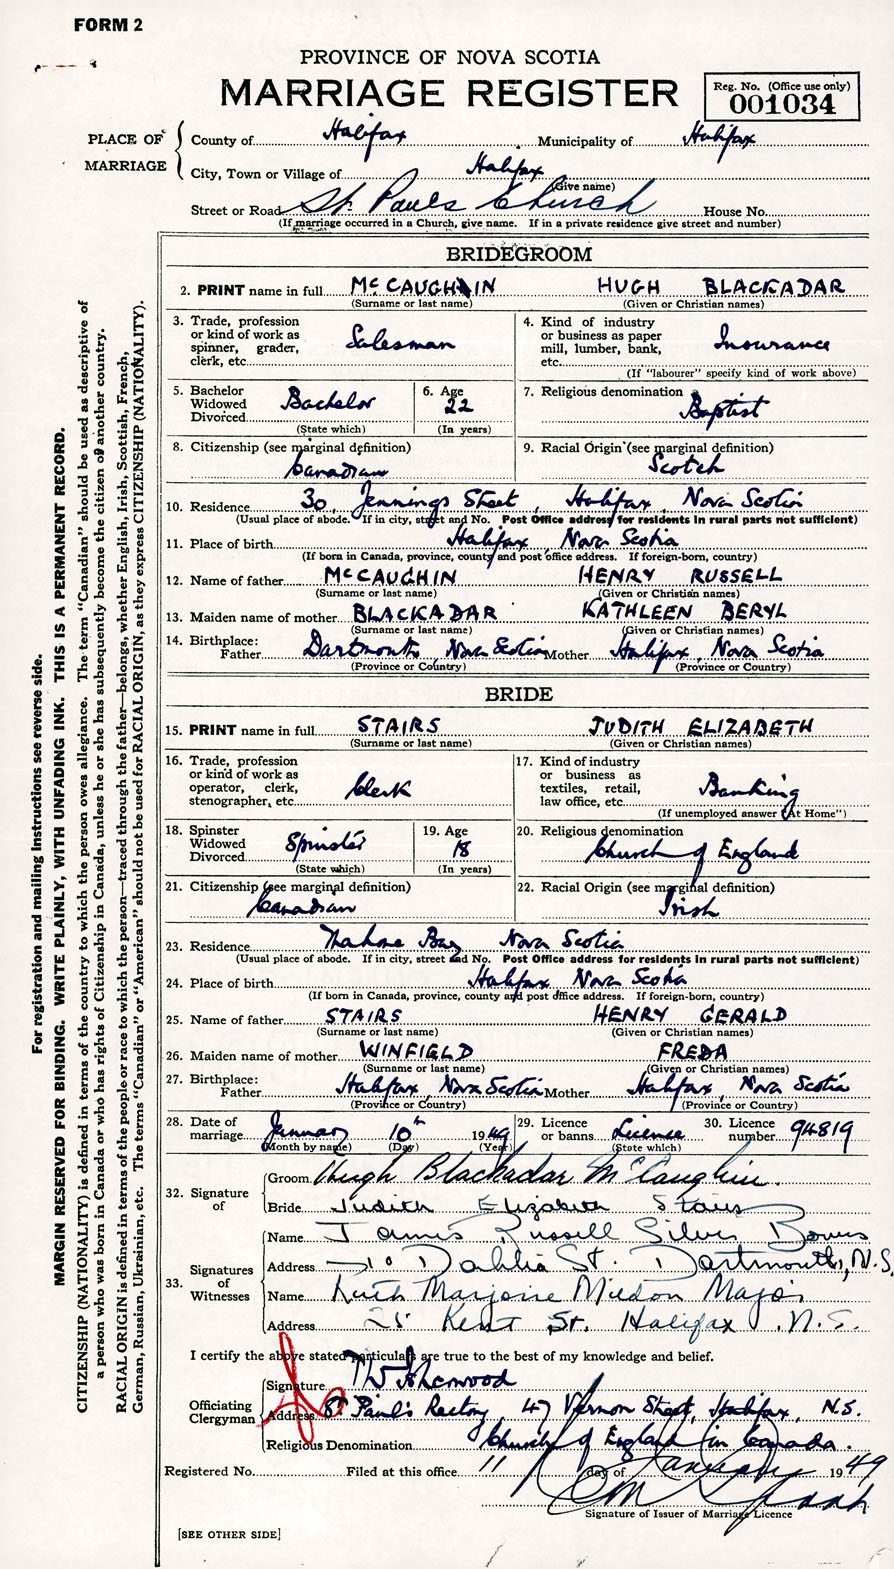 FORM 2
PROVINCE OF NOVA SCOTIA
MARRIAGE REGISTER
Reg. No. (Office use only)
001034
PLACE OF MARRIAGE
County of Halifax Municipality of Halifax
City, Town or Village of Halifax
(Give name)
Street or Road St. Pauls Church House No.
(If marriage occurred in a Church, give name. If in a private residence give street and number)
BRIDEGROOM
2. PRINT name in full McCAUGHIN HUGH BLACKADAR
(Surname or last name) (Given or Christian names)
3. Trade, profession or kind of work as spinner, grader, clerk, etc. Salesman
4. Kind of industry or business as paper mill, lumber, bank, etc. Insurance
(If "labourer" specify kind of work above)
5. Bachelor Widowed Divorced Bachelor
(State which)
6. Age 22
(In years)
7. Religious denomination Baptist
8. Citizenship (see marginal definition) Canadian
9. Racial Origin (see marginal definition) Scotch
10. Residence 30, Jennings Street, Halifax, Nova Scotia
(Usual place of abode. If in city, street and No. Post Office address for residents in rural parts not sufficient)
11. Place of birth Halifax, Nova Scotia
(If born in Canada, province, county and post office address. If foreign-born, country)
12. Name of father McCAUGHIN HENRY RUSSELL
(Surname or last name) (Given or Christian names)
13. Maiden name of mother BLACKADAR KATHLEEN BERYL
(Surname or last name) (Given or Christian names)
14. Birthplace:
Father Dartmouth, Nova Scotia Mother Halifax, Nova Scotia
(Province or Country) (Province or Country)
BRIDE
15. PRINT name in full STAIRS JUDITH ELIZABETH
(Surname or last name) (Given or Christian names)
16. Trade, profession or kind of work as operator, clerk, stenographer, etc. Clerk
17. Kind of industry or business as textiles, retail, law office, etc. Banking
(If unemployed answer "At Home")
18. Spinster Widowed Divorced Spinster
(State which)
19. Age 18
(In years)
20. Religious denomination Church of England
21. Citizenship (see marginal definition) Canadian
22. Racial Origin (see marginal definition) Irish
23. Residence Mahone Bay Nova Scotia
(Usual place of abode. If in city, street and No. Post Office address for residents in rural parts not sufficient)
24. Place of birth Halifax, Nova Scotia
(If born in Canada, province, county and post office address. If foreign-born, country)
25. Name of father STAIRS HENRY GERALD
(Surname or last name) (Given or Christian names)
26. Maiden name of mother WINFIELD FREDA
(Surname or last name) (Given or Christian names)
27. Birthplace:
Father Halifax, Nova Scotia Mother Halifax, Nova Scotia
(Province or Country) (Province or Country)
28. Date of marriage January 10th 1949
(Month by name) (Day) (Year)
29. Licence or banns Licence
(State which)
30. Licence number 94819
32. Signature of
Groom Hugh Blackadar McCaughin.
Bride Judith Elizabeth Stairs
33. Signatures of Witnesses
Name James Russell Silver Bowes
Address Dahlia St. Dartmouth, N.S.
Name Ruth Marjorie Major
Address 25 Kent St. Halifax N.S.
I certify the above stated particulars are true to the best of my knowledge and belief.
Officiating Clergyman
Signature
Address St Paul's Rectory, 47 Vernon Street, Halifax, N.S.
Religious Denomination Church of England in Canada.
Registered No. Filed at this office 11 day of January 1949
Signature of Issuer of Marriage Licence
[SEE OTHER SIDE]
For registration and mailing instructions see reverse side.
MARGIN RESERVED FOR BINDING. WRITE PLAINLY, WITH UNFADING INK. THIS IS A PERMANENT RECORD.
CITIZENSHIP (NATIONALITY) is defined in terms of the country to which the person owes allegiance. The term "Canadian" should be used as descriptive of
a person who was born in Canada or who has rights of Citizenship in Canada, unless he or she has subsequently become the citizen of another country.
RACIAL ORIGIN is defined in terms of the people or race to which the person—traced through the father—belongs, whether English, Irish, Scottish, French,
German, Russian, Ukrainian, etc. The terms "Canadian" or "American" should not be used for RACIAL ORIGIN, as they express CITIZENSHIP (NATIONALITY).